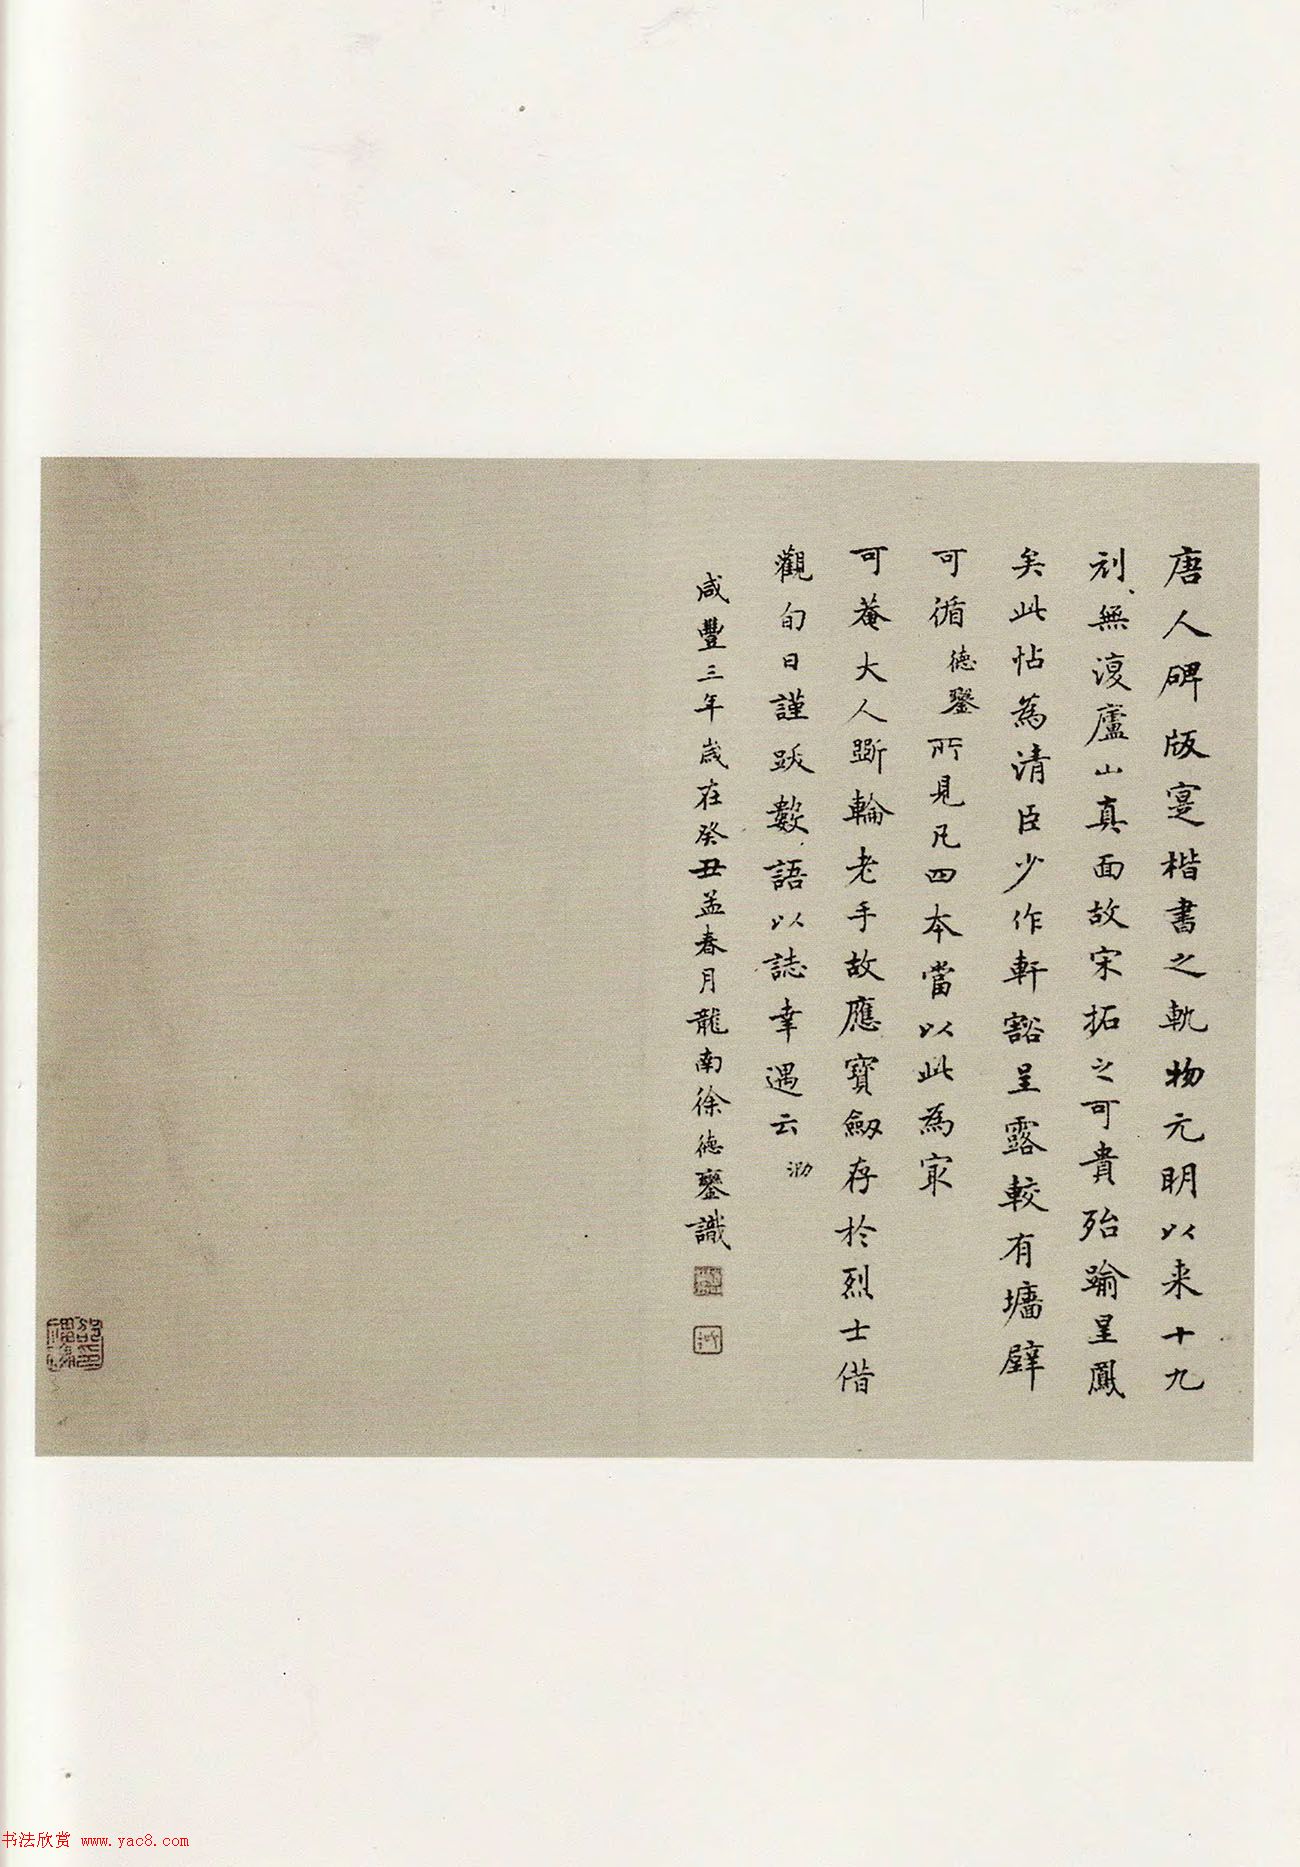 唐人碑版寔楷書之軌物元明以来十九
刓無復廬山真面故宋拓之可貴殆踰星鳳
矣此帖為清臣少作軒豁呈露較有墉壁
可循德鋆所見凡四本當以此為冣
可菴大人斲輪老手故應寶劔存於烈士借
觀旬日謹跋數語以誌幸遇云泐
咸豐三年歲在癸丑孟春月龍南徐德鋆識
书法欣赏 www.yac8.com